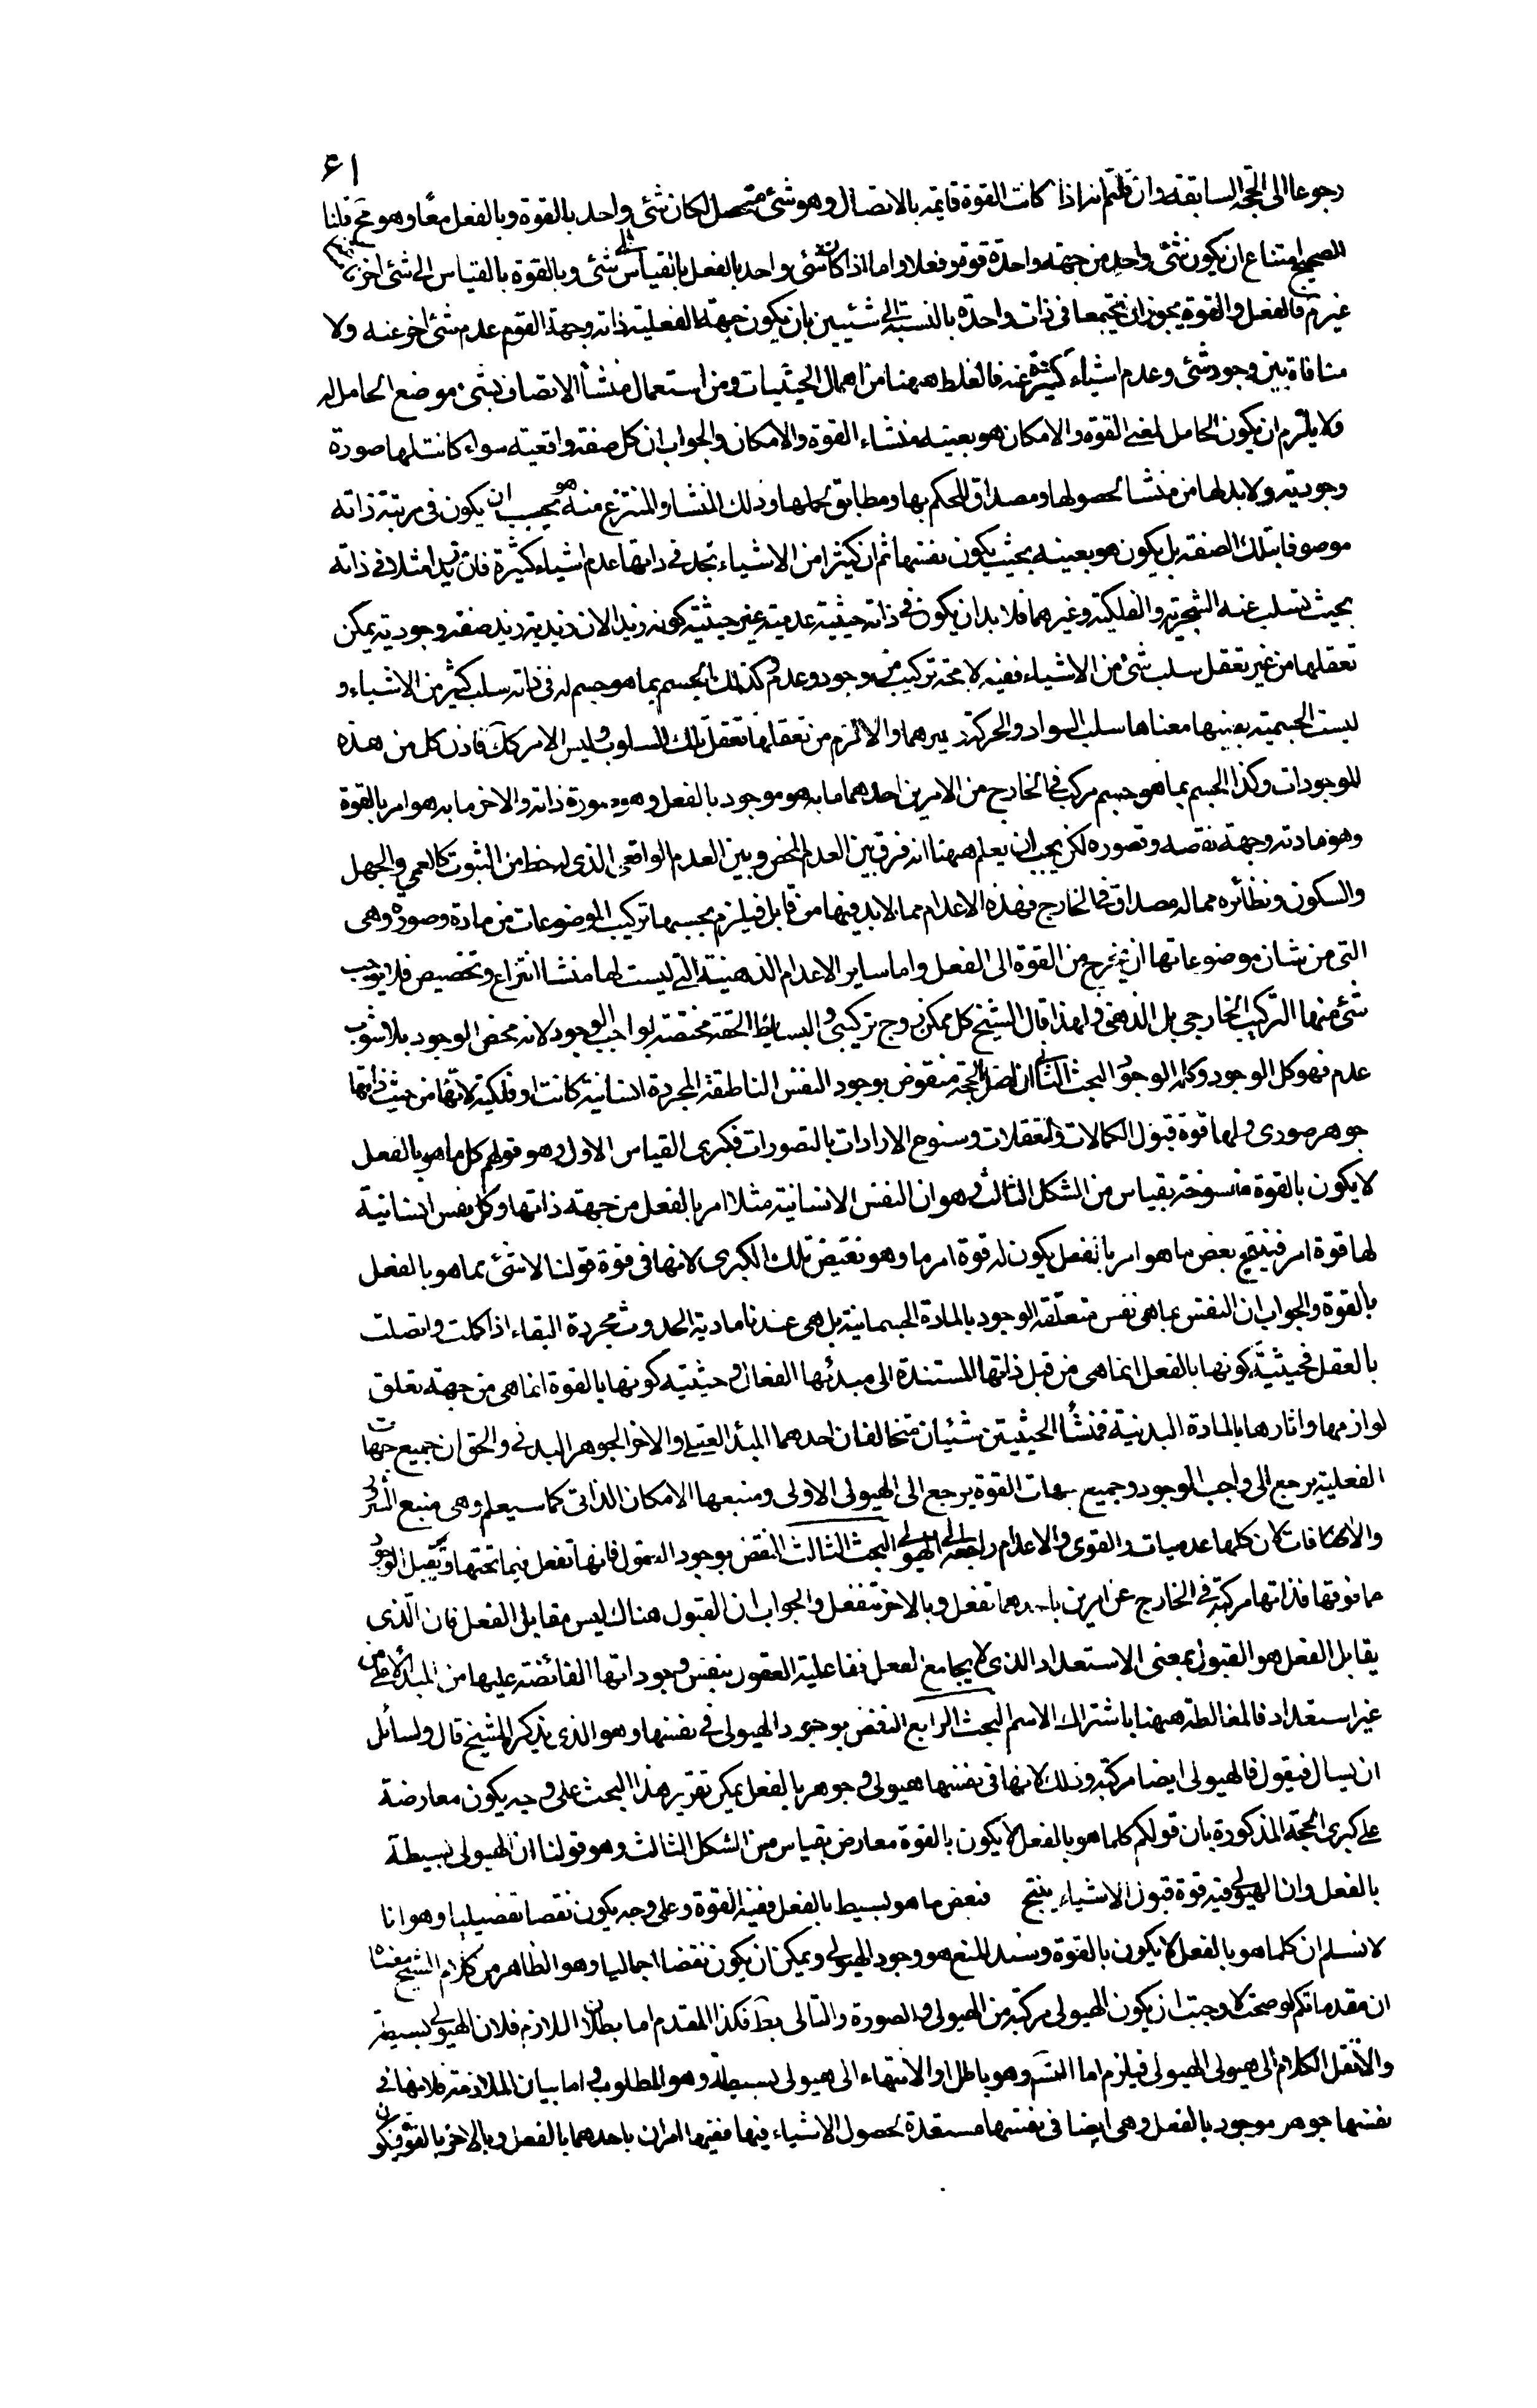 ۶۱
رجوعا الى الحجة السابقة وان قلتم انه اذا كانت القوة قائمة بالاتصال وهو شئ متصل لكان شئ واحد بالقوة وبالفعل معًا وهو مح قلنا
الصحيح امتناع ان يكون شئ واحد من جهة واحدة قوة وفعلا واما اذا كان شئ واحد بالفعل بالقياس الى شئ وبالقوة بالقياس الى شئ اخر
غيرتم فالفعل والقوة يجوز ان يجتمعا فى ذات واحدة بالنسبة الى شيئين بان يكون جهة الفعلية ذاته وجهة القوة عدم شئ اخر عنه ولا
منافاة بين وجود شئ وعدم اشياء كثيرة عنه فالغلط ههنا من اهمال الحيثيات ومن استعمال منشأ الاتصاف بشئ موضع الحامل له
فلا يلزم ان يكون الحامل لمعنى القوة والامكان هو بعينه منشاء القوة والامكان والجواب ان كل صفة واقعية سواء كانت لها صورة
وجودية ولا بد لها من منشأ لحصولها ومصداق للحكم بها ومطابق لحملها وذلك المنشا والمنتزع منه هو يجب ان يكون فى مرتبة ذاته
موصوفا بتلك الصفة بل يكون هو بعينه بحيث يكون نفسها ثم ان كثيرا من الاشياء تجد فى ذاتها عدم اشياء كثيرة فان زيدا مثلا فى ذاته
بحيث تسلب عنه الشجرية والفلكية وغيرهما فلا بد ان يكون فى ذاته حيثية عدمية غير حيثية كونه زيدا لان زيدية زيد صفة وجودية يمكن
تعقلها من غير تعقل سلب شئ من الاشياء ففيه لا محة تركيب من وجود وعدم وكذلك الجسم بما هو جسم له فى ذاته سلب كثير من الاشياء و
ليست الجسمية بعينها معناها سلب السواد والحركة وغيرهما والا لزم من تعقلها تعقل تلك السلوب وليس الامر كك فاذن كل من هذه
الموجودات وكذا الجسم بما هو جسم مركب فى الخارج من الامرين احدهما ما به هو موجود بالفعل وهو صورة ذاته والاخر ما به هو امر بالقوة
وهو مادته وجهة نقصه وقصوره لكن يجب ان يعلم ههنا انه فرق بين العدم المحض وبين العدم الواقعى الذى له حظ من الثبوت كالعمى والجهل
والسكون ونظائره مما له مصداق فى الخارج فهذه الاعدام مما لا بد فيها من قابل فيلزم بحسبها تركيب الموضوعات من مادة وصورة وهى
التى من شان موضوعاتها ان يخرج من القوة الى الفعل واما ساير الاعدام الذهنية التى ليست لها منشا انتزاع وتخصيص فلا يوجب
شئ منها التركيب الخارجى بل الذهنى ولهذا قال الشيخ كل ممكن زوج تركيبى والبسائط الحقة مختصة بواجب الوجود لانه محض الوجود بلا شوب
عدم فهو كل الوجود وكله الوجود البحث الثانى ان اصل الحجة منقوض بوجود النفس الناطقة المجردة انسانية كانت او فلكية لانها من حيث ذاتها
جوهر صورى ولها قوة قبول الكمالات والتعقلات وسنوح الارادات بالتصورات فكبرى القياس الاول وهو قولهم كل ما هو بالفعل
لا يكون بالقوة منسوخة بقياس من الشكل الثالث وهو ان النفس الانسانية مثلا امر بالفعل من جهة ذاتها وكل نفس انسانية
لها قوة امر فينتج بعض ما هو امر بالفعل يكون له قوة امر ما وهو نقيض تلك الكبرى لانها فى قوة قولنا لا شئ بما هو بالفعل
بالقوة والجواب ان النفس بما هى نفس متعلقة الوجود بالمادة الجسمانية بل هى عندنا مادية الحدوث مجردة البقاء اذا كملت واتصلت
بالعقل فحيثية كونها بالفعل انما هى من قبل ذاتها المستندة الى مبدئها الفعال وحيثية كونها بالقوة انما هى من جهة تعلق
لوازمها واثارها بالمادة البدنية فمنشأ الحيثيتين شيئان متخالفان احدهما المبدأ العقلى والاخر الجوهر البدنى والحق ان جميع جهات
الفعلية يرجع الى واجب الوجود وجميع جهات القوة يرجع الى الهيولى الاولى ومنبعها الامكان الذاتى كما سيعلم وهى منبع الشرور
والافات لان كلها عدميات والقوى والاعدام راجعة الى الهيولى البحث الثالث النقض بوجود العقول فانها تفعل فيما تحتها وتقبل الوجود
مما فوقها فذاتها مركبة فى الخارج عن امرين باحدهما تفعل وبالاخر تنفعل والجواب ان القبول هناك ليس مقابل الفعل فان الذى
يقابل الفعل هو القبول بمعنى الاستعداد الذى لا يجامع الفعل وفاعلية العقول بنفس وجوداتها الفائضة عليها من المبدأ الاعلى من
غير استعداد فالمغالطة ههنا باشتراك الاسم البحث الرابع النقض بوجود الهيولى فى نفسها وهو الذى يذكر الشيخ قال ولسائل
ان يسال فيقول فالهيولى ايضا مركبة وذلك لانها فى نفسها هيولى وجوهر بالفعل يمكن تقرير هذا البحث على وجه يكون معارضة
على كبرى الحجة المذكورة بان قولكم كلما هو بالفعل لا يكون بالقوة معارض بقياس من الشكل الثالث وهو قولنا ان الهيولى بسيطة
بالفعل وان الهيولى فيه قوة قبول الاشياء ينتج فبعض ما هو بسيط بالفعل ففيه القوة وعلى وجه يكون نقضا تفصيليا وهو انا
لا نسلم ان كلما هو بالفعل لا يكون بالقوة وسند المنع هو وجود الهيولى ويمكن ان يكون نقضا اجماليا وهو الظاهر من كلام الشيخ معناه
ان مقدماتكم لو صحت لاوجبت ان يكون الهيولى مركبة من الهيولى والصورة والتالى بط فكذا المقدم اما بطلان اللازم فلان الهيولى بسيطة
والا نقل الكلام الى هيولى الهيولى فيلزم اما التس وهو باطل او الانتهاء الى هيولى بسيطة وهو المطلوب واما بيان الملازمة فلانها فى
نفسها جوهر موجود بالفعل وهى ايضا فى نفسها مستعدة لحصول الاشياء فيها ففيها امران باحدهما بالفعل وبالاخر بالقوة فيكون